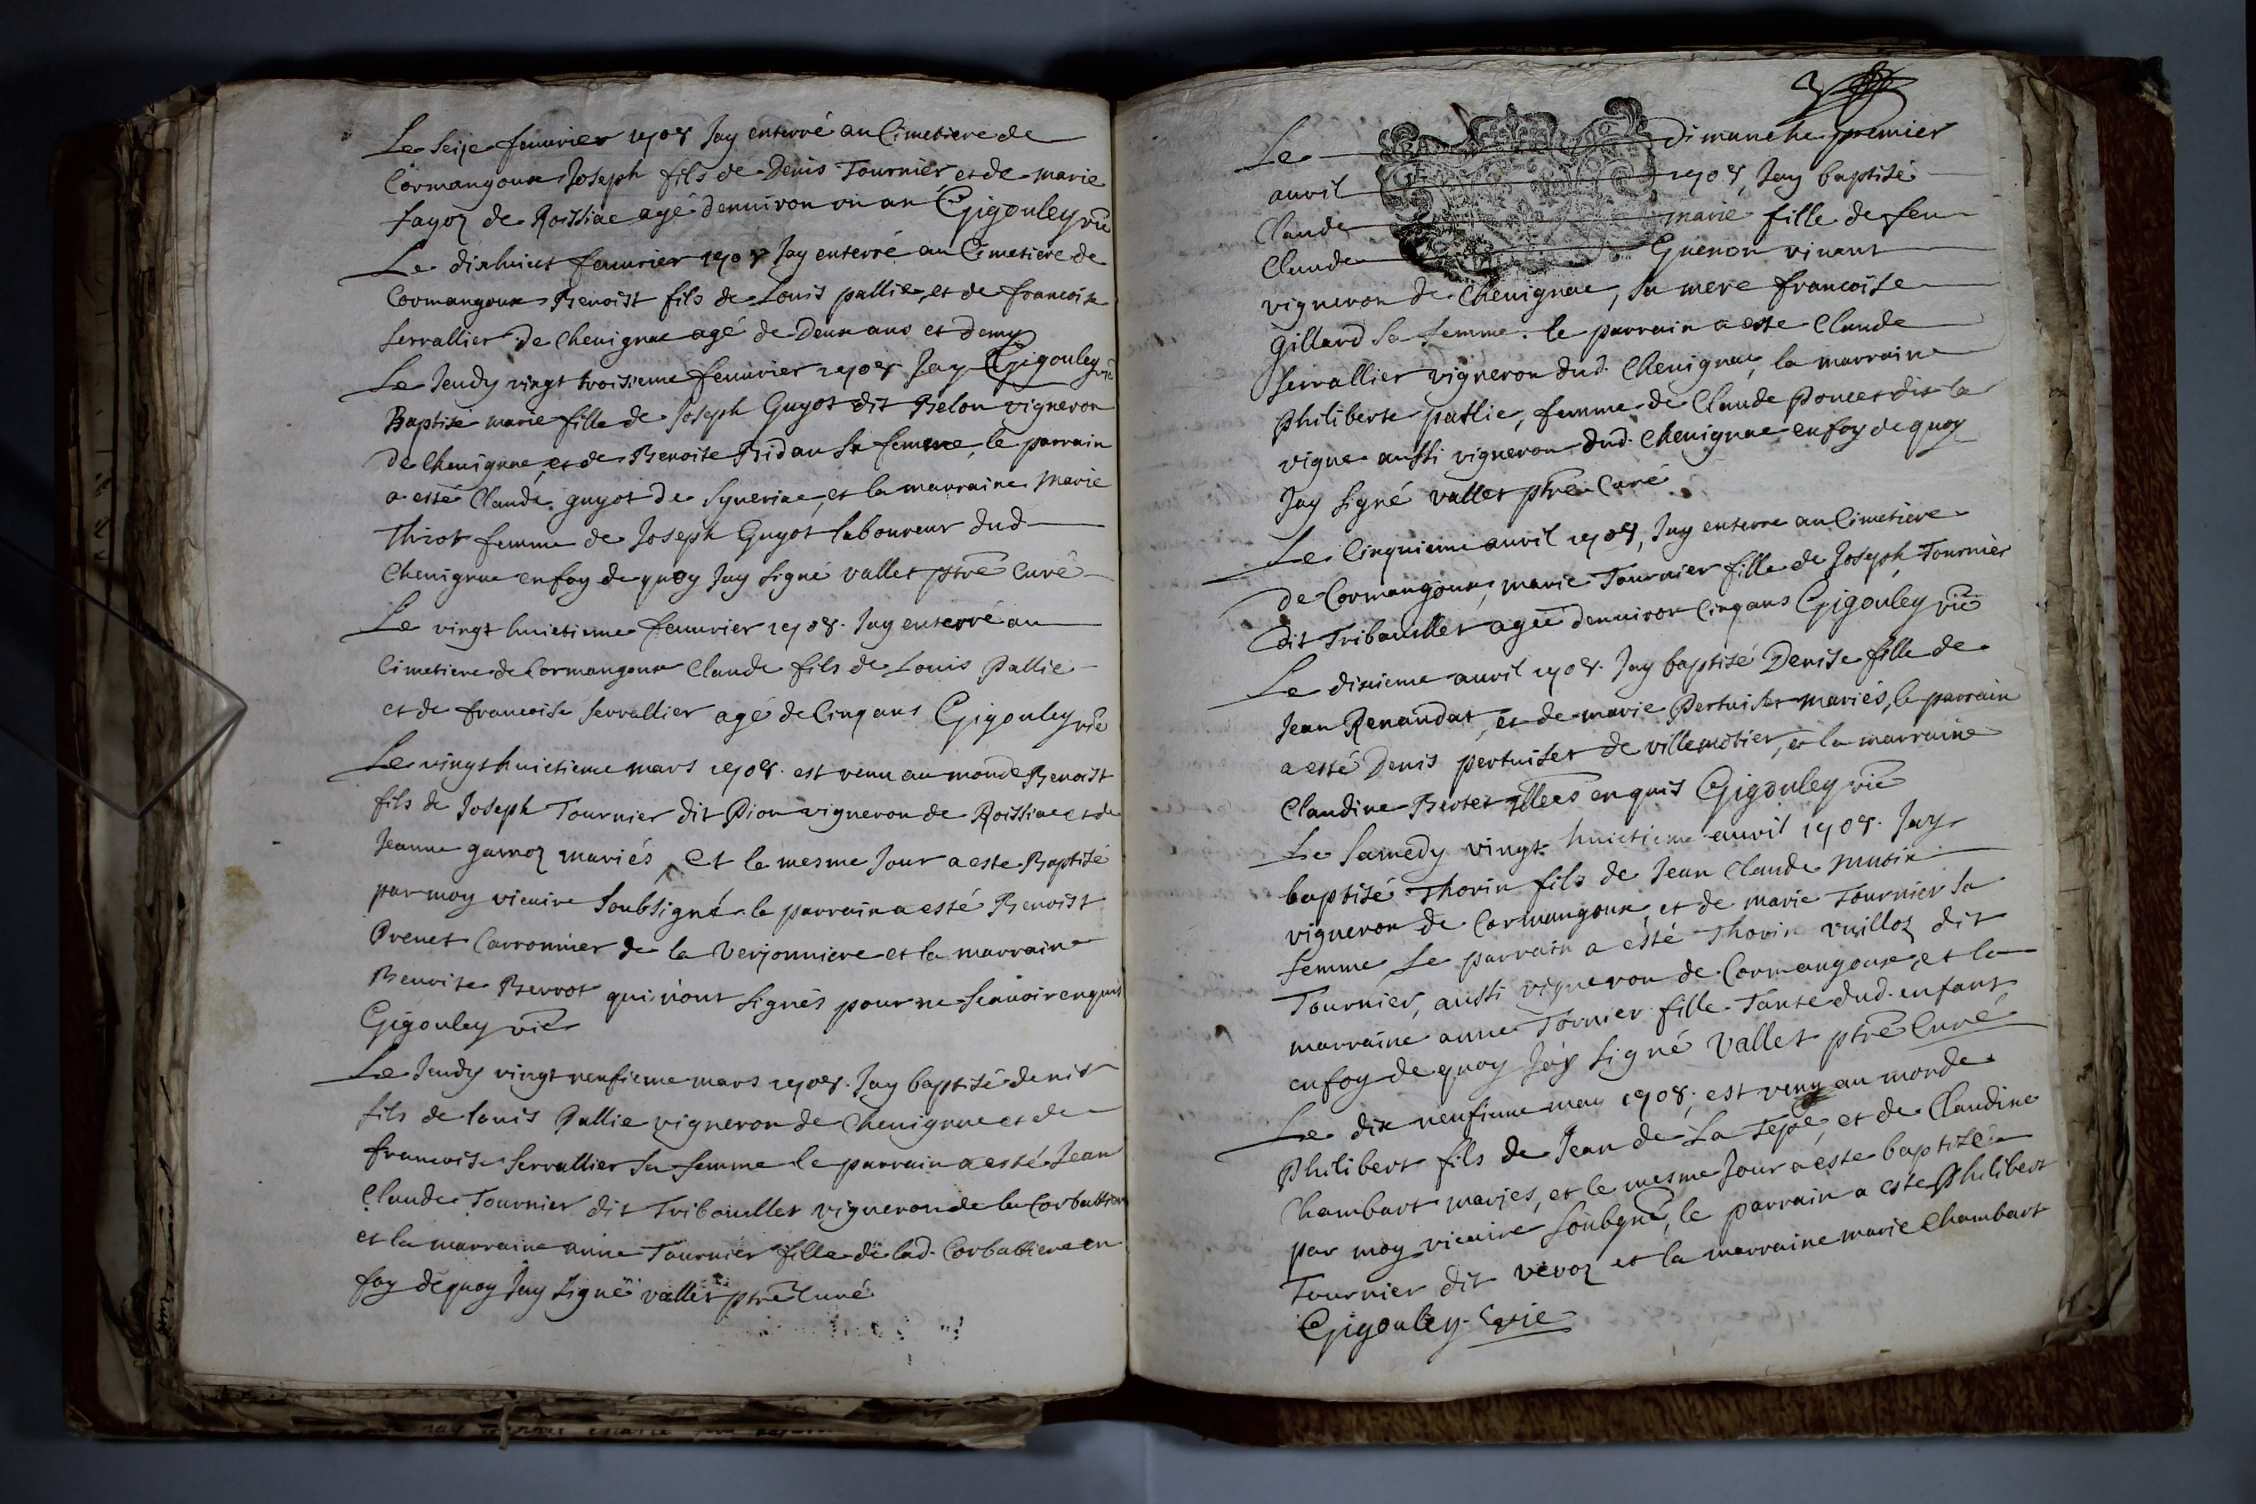 Le seize feuurier 1708 Jay enterré au Cimetiere de
Cormangoux Joseph fils de Denis Tournier et de marie
fayoz de Roissiac agé denuiron un an Gigouley vic
Le dixhuict feuurier 1708 Jay enterré au Cimetiere de
Cormangoux Benoist fils de Louis pallie, et de francoise
serrallier de Cheuignac agé de Deux ans et demy
Le Jeudy vingt troisieme feuurier 1708 Jay Gigouley vic
Baptisé marie fille de Joseph Guyot dit Belon vigneron
de Cheuignac, et de Benoite Bidau sa femme, le parrain
a esté Claude guyot de Syueriac, et la marraine Marie
Thiot femme de Joseph Guyot laboureur dud
Cheuignac enfoy de quoy Jay signé vallet ptre Curé
Le vingt huictieme feuurier 1708. Jay enterré au
Cimetiere de Cormangoux Claude fils de Louis Pallie
et de francoise serrallier agé de Cinq ans Gigouley vic
Le vingt huictieme mars 1708. est venu au monde Benoist
fils de Joseph Tournier dit Pion vigneron de Roissiac et de
Jeanne garnoz mariés, et le mesme Jour a este Baptisé
par moy vicaire soubsigné le parrain a esté Benoist
Prenet Carronnier de la Verjonniere et la marraine
Benoite Berrot qui n'ont signés pour ne scauoir enquis
Gigouley vic
Le Jeudy vingt neufieme mars 1708. Jay baptisé denis
fils de louis Pallie vigneron de Cheuignac et de
francoise serrallier sa femme le parrain a esté Jean
Claude Tournier dit Tribouillet vigneron de la Corbattiere
et la marraine anne Tournier fille de lad. Corbattiere en
foy de quoy Jay signé vallet ptre Curé
2
Le dimanche premier
auril 1708, Jay baptisé
Claude marie fille de feu
Claude Guenon viuant
vigneron de Cheuignac, sa mere francoise
Gillard sa femme. le parrain a este Claude
serrallier vigneron dud. Cheuignac, la marraine
Philiberte pallie, femme de Claude Poncet dit la
vigne aussi vigneron dud. Cheuignac enfoy de quoy
Jay signé vallet ptre Curé
Le Cinquieme auril 1708, Jay enterre au Cimetiere
de Cormangoux, marie Tournier fille de Joseph Tournier
dit Tribouillet agée denuiron Cinq ans Gigouley vic
Le dixieme auril 1708. Jay baptisé Denise fille de
Jean Renaudat, et de marie Pertuiset mariés, le parrain
a esté Denis pertuiset de villemotier, et la marraine
Claudine Bertet illeres enquis Gigouley vic
Le samedy vingt huictieme auril 1708. Jay
baptisé Thorin fils de Jean Claude
vigneron de Cormangoux, et de marie Tournier sa
femme, Le parrain a esté Thorin vuilloz dit
Tournier, aussi vigneron de Cormangoux, et la
marraine anne Tornier fille Tante dud. enfant
enfoy de quoy Jay signé Vallet ptre Curé
Le dix neufieme may 1708, est venu au monde
Philibert fils de Jean de La Teyse, et de Claudine
Chambart mariés, et le mesme Jour a este baptisé
par moy vicaire soubgné, le parrain a este Philibert
Tournier dit veroz et la marraine marie Chambart
Gigouley vic